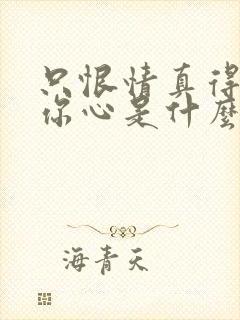 只恨情真得
你心是什麼
海青天